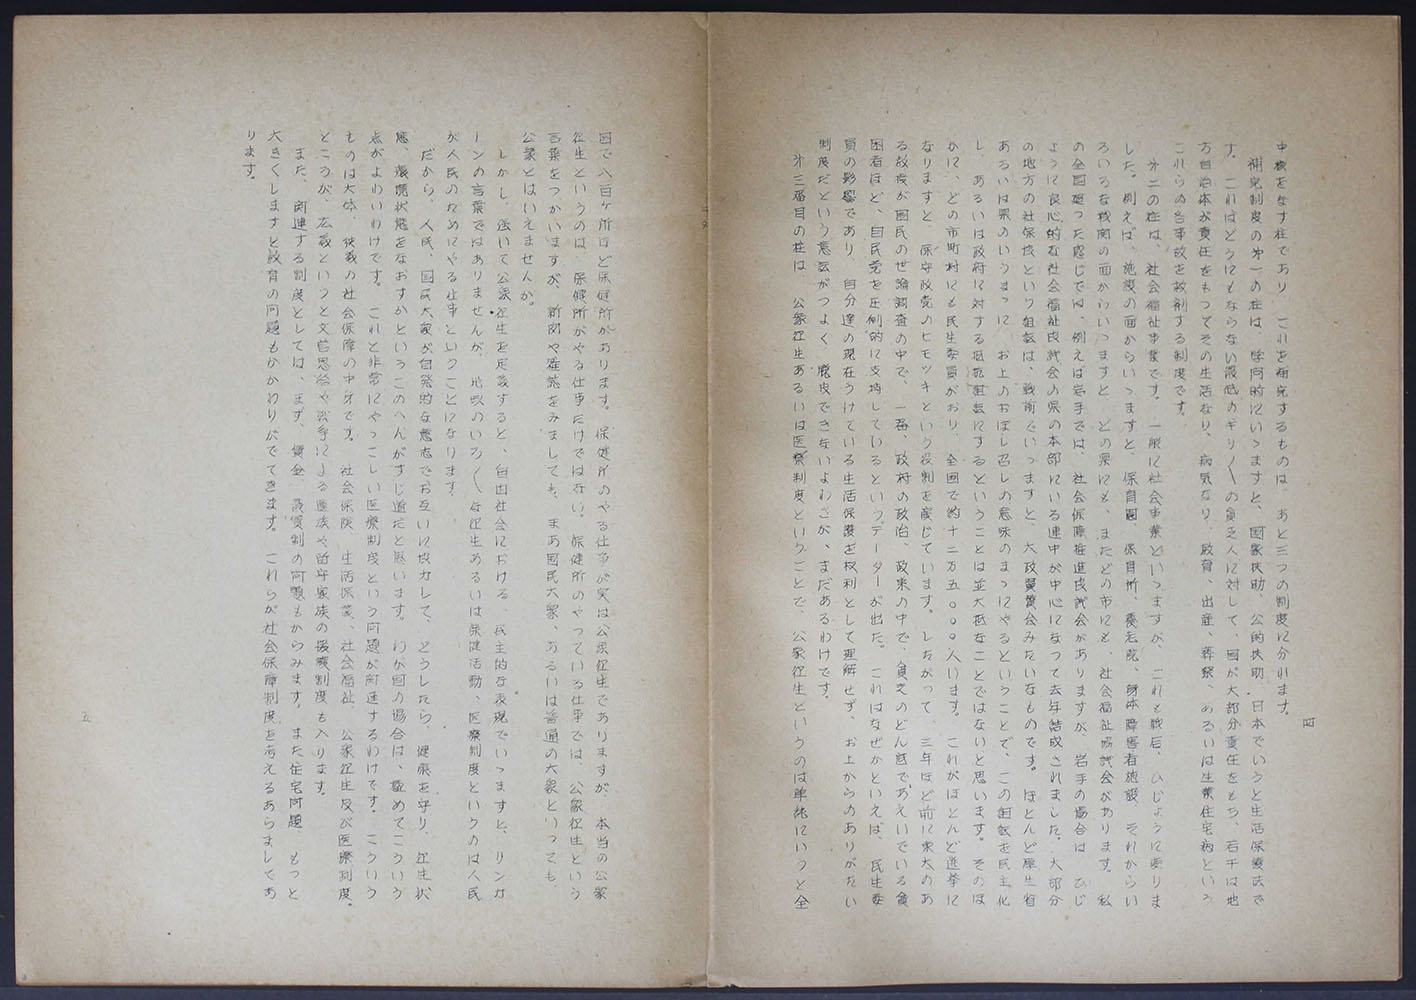 中核をなす柱であり、これを補完するものは、あと三つの制度に分れます。
補完制度の第一の柱は、学問的にいいますと、国家扶助、公的扶助、日本でいうと生活保護法で
す。これはどうにもならない最低のギリ〳〵の貧乏人に対して、国が大部分責任をもち、若干は地
方自治体が責任をもつてその生活なり、病気なり、教育、出産、葬祭、あるいは生業住宅病という
これらの各事故を救済する制度です。
第二の柱は、社会福祉事業です。一般に社会事業といつますが、これも戦后、ひじように変りま
した。例えば、施設の面からいつますと、保育園、保育所、養老院、身体障害者施設、それからい
ろいろな機関の面からいいつますと、どの県にも、またどの市にも、社会福祉協議会があります。私
の全国廻った感じでは、例えば岩手では、社会保障推進協議会がありますが、岩手の場合は、ひじ
ように良心的な社会福祉協議会の県の本部にいる連中が中心になって去年結成されました。大部分
の地方の社保協という組織は、戦前でいつますと、大政翼賛会みたいなものです。ほとんど厚生省
あるいは県のいうまゝに、お上のおぼし召しの意味のまゝにやるということで、この組織を民主化
し、あるいは政府に対する抵抗組織にするということは並大抵なことではないと思います。そのほ
かに、どの市町村にも民生委員がおり、全国で約十二万五〇〇〇人います。これがほとんど選挙に
なりますと、保守政党のヒモツキという役割を演じています。したがって、三年ほど前に東大のあ
る教授が国民の世論調査の中で、一番、政府の政治、政策の中で、貧乏のどん底であえいでいる貧
困者ほど、自民党を圧倒的に支持しているというデーターが出た。これはなぜかといえば、民生委
員の影響であり、自分達の現在うけている生活保護を権利として理解せず、お上からのありがたい
制度だという意識がつよく、脱皮できないよわさが、まだあるわけです。
第三番目の柱は、公衆衛生あるいは医療制度ということで、公衆衛生というのは単純にいうと全
四
国で八百ヶ所ほど保健所があります。保健所のやる仕事が実は公衆衛生でありますが、本当の公衆
衛生というのは、保健所がやる仕事だけではない。保健所のやっている仕事では、公衆衛生という
言葉をつかいますが、新聞や雑誌をみましても、まあ国民大衆、あるいは普通の大衆といっても
公衆とはいえませんか。
しかし、強いて公衆衛生を定義すると、自由社会における、民主的な表現でいつますと、リンカ
ーンの言葉ではありませんが、地域のいろ〳〵な衛生あるいは保健活動、医療制度というのは人民
が人民のためにやる仕事ということになります。
だから、人民、国民大衆が自発的な意志でお互いに協力して、どうしたら、健康を守り、衛生状
態、環境状態をなおすかというこのへんがすじ道だと思います。わが国の場合は、極めてこういう
点がよわいわけです。これと非常にやっこしい医療制度という問題が関連するわけです。こういう
ものは大体、狭義の社会保障の中身です。社会保険、生活保護、社会福祉、公衆衛生及び医療制度。
ところが、広義というと文官恩給や戦争による遺族や留守家族の援護制度も入ります。
また、関連する制度としては、まず、賃金、最賃制の問題もからみます。また住宅問題、もっと
大きくしますと教育の問題もかかわりがでてきます。これらが社会保障制度を考えるあらましであ
ります。
五